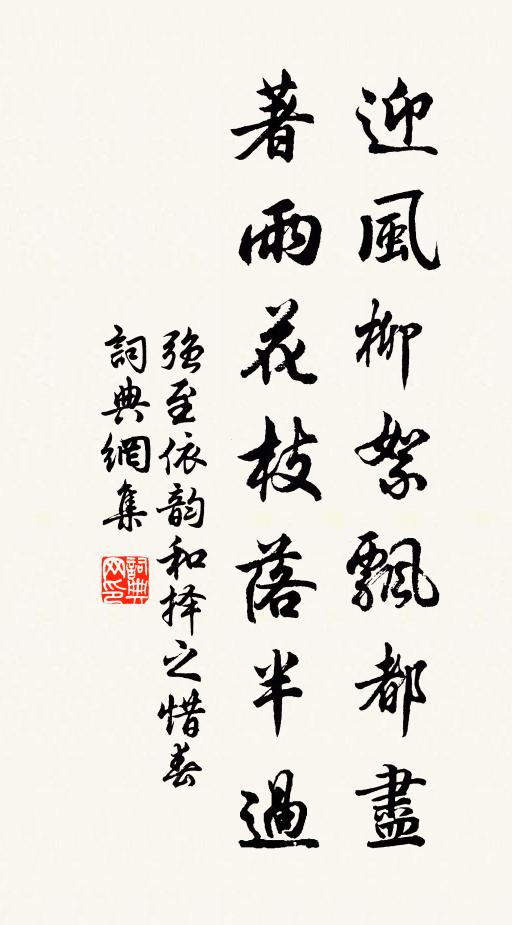 迎風柳絮飄都盡
著雨花枝落半過
强至依韵和择之惜春
詞典網集
詞典网印